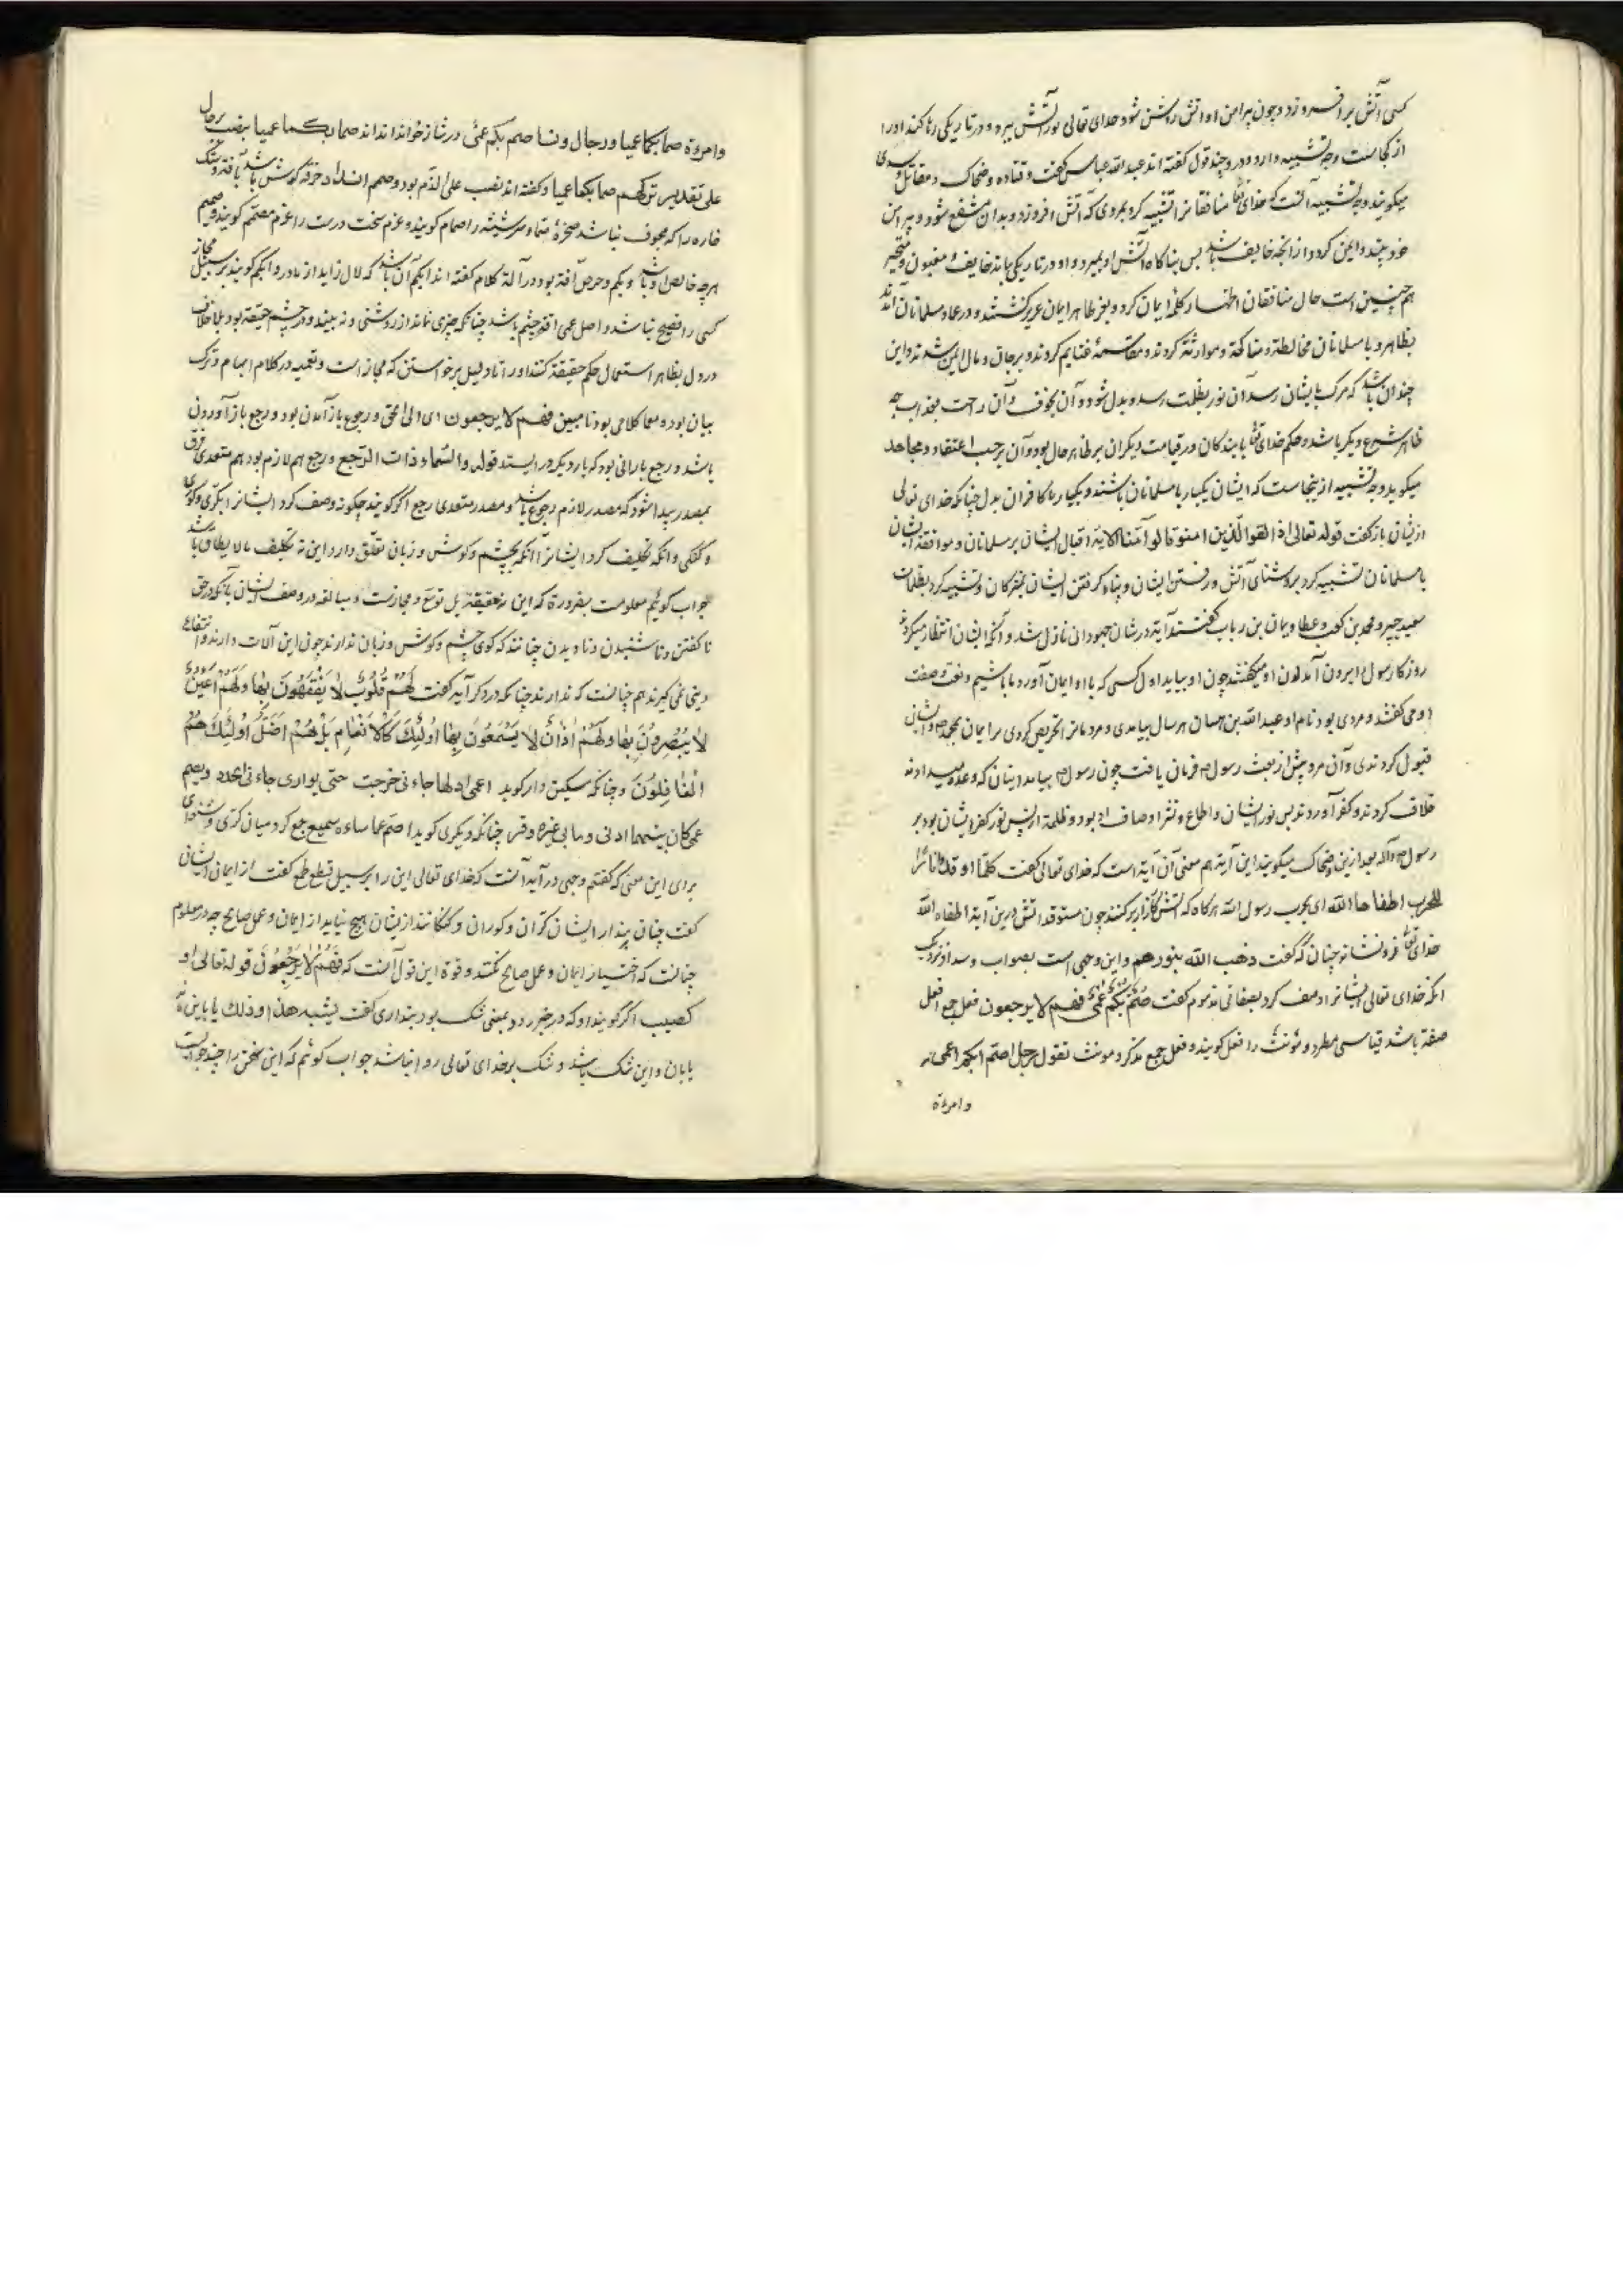 کسی آتش بر افروزد و چون پیرامن او آتش روشن شود خدای تعالی نور آتش ببرد و در تاریکی رها کند او را
از کجاست وجه تشبیه دارد و درو چند قول گفته اند عبد الله عباس گفت و قتاده و ضحاک و مقاتل و سدی
میکویند وجه تشبیه آنست که خدای تعا منافقانرا تشبیه کرد بمردی که آتش افروزد و بدان منتفع شود و پیرامن
خود بیند و ایمن کردد از انجه خایف باشد بس بناکاه آتش او بمیرد و او در تاریکی بماند خایف و مغبون و متحیر
همچنین است حال منافقان اظهار کلمه ایمان کرد و بعز ظاهر ایمان عزیز کشتند و در عداد مسلمانان آمدند
بظاهر و با مسلمانان مخالطة و مناکحة و موارثة کردند و مقاسمة غنایم کردند و بر جان و مال ایمن شدند و این
چندان باشد که مرک بایشان رسد آن نور بظلمت رسد و بدل شود و آن بخوف و آن راحت بعذاب چه
ظاهر شرع دیکر باشد و حکم خدای تعا با بندکان در قیامت دیکر ان بر ظاهر حال بود و آن بر حسب اعتقاد و مجاهد
میکوید وجه تشبیه ازینجاست که ایشان یکبار با مسلمانان باشند و یکبار با کافران بدل چنانکه خدای تعالی
ازیشان باز کفت قوله تعالی اذا لقوا الذین امنوا قالوا آمنا الایة اقبال ایشان بر مسلمانان و موافقة ایشان
با مسلمانان تشبیه کرد بروشنای آتش و رفتن ایشان و پناه کرفتن ایشان بمشرکان و تشبیه کرد بظلمات
سعید جبیر و محمد بن کعب و عطا و یمان بن رباب کفتند آیة در شان جهودان نازل شد و آنکه ایشان انتظار میکردند
روزکار رسول را بیرون آمدن او میکفتند چون او بیاید اول کسی که با او ایمان آورد ما باشیم و نعت و صفت
او می کفتند و مردی بود نام او عبد الله بن هر سال بیامدی و مردمانرا تحریص کردی بر ایمان بمحمد ص و ایشان
قبول کردندی و آن مرد پیش از بعثت رسول ص فرمان یافت چون رسول ص بیامد اینان که وعده میدادند
خلاف کردند و کفر آوردند بس نور ایشان و اوصاف او بود و ظلمة ازپس نور کفر ایشان بود بر
رسول ص و آله بعد ازین و ضحاک میکویند این آیة هم معنی آن آیة است که خدای تعالی کفت کلما اوقدوا نارا
للحرب اطفاها الله ای بحرب رسول الله هر کاه که آتش کارزار بر کنند چون مستوقد آتش درین آیة اطفاه الله
خدای تعا فرو نشاند چنان که کفت ذهب الله بنورهم و این وجهی است بصواب و سداد نزدیک
انکه خدای تعالی ایشانرا وصف کرد بصفاتی مذموم کفت صُمٌّ بُکمٌ عُمیٌ فهم لا یرجعون فعل جمع افعل
صفة باشد قیاسی مطرد و مؤنث را فعل کویند و فعل جمع مذکر و مؤنث تقول رجل اصم ابکم اعمی
وامرءة
وامرءة صما بکما عمیا و رجال و نسا صم بکم عمی و در شاذ خوانده اند صما بکما عمیا بنصب بر حال
علی تقدیر ترکهم صما بکما عمیا و کفته اند نصب علی الذم بود و صمم انسداد خرق کوش باشد بآفة و سنک
خاره را که مجوف نباشد صخره صماء و سر شیشه را صمام کویند و عزم سخت درست را عزم مصمم کویند و صمیم
هرچه خالص او باشد و بکم و خرس آفة بود در آلة کلام کفته اند ابکم آن باشد که لال زاید از مادر و ابکم کویند بر سبیل مجاز
کسی را فصیح نباشد و اصل عمی آفة چشم باشد چنانکه چیزی نماند از روشنی و نه بیند و در چشم حقیقة بود بلا خلاف
در دل بظاهر استعمال حکم حقیقة کنند او را تا دلیل برخواستن که مجاز است و تعمیه در کلام ابهام و ترک
بیان بود و معما کلامی بود نا مبین فهم لا یرجعون ای الی الحق و رجوع باز آمدن بود و رجع باز آوردن
باشد و رجع بارانی بود که بار دیکر در ایستد قوله والسماء ذات الرجع و رجع هم لازم بود هم متعدی فرق
بمصدر پیدا شود که مصدر لازم رجوع باشد و مصدر متعدی رجع اکر کویند چکونه وصف کرد ایشانرا بکری و کوری
و کنکی و انکه تکلیف کرد ایشانرا آنکه بچشم و کوش و زبان تعلق دارد این نه تکلیف مالا یطاق باشد
جواب کوئیم معلومست بضرورة که این نه حقیقة بل توسع و مجازست و مبالغه در وصف ایشان بآنکه در حق
نا کفتن و نا شنیدن و نا دیدن چنانند که کوی چشم و کوش و زبان ندارند چون این آلات دارند و انتفاع
دینی نمی کیرند هم چنانست که ندارند چنانکه در دکر آیه کفت لَهُمْ قُلُوبٌ لَا یَفْقَهُونَ بِهَا وَلَهُمْ اَعْیُنٌ
لَا یُبْصِرُونَ بِهَا وَلَهُمْ اٰذَانٌ لَا یَسْمَعُونَ بِهَا اُولٰئِکَ کَالْاَنْعَامِ بَلْ هُمْ اَضَلُّ اُولٰئِکَ هُمُ
الْغَافِلُونَ و چنانکه مسکین دار کوید اعمی اذا ما جارتی خرجت حتی یواری جارتی الخدر و یصم
عما کان بینهما اذنی و ما بی غیره وقر چنانکه دیکری کوید اصم عما ساءه سمیع جمع کرد میان کری و شنوای
برای این معنی که کفتم وجهی در آیه آنست که خدای تعالی این را بر سبیل قطع طمع کفت از ایمان ایشان
کفت چنان پندار ایشان کران و کوران و کنکانند ازیشان هیچ نیاید از ایمان و عمل صالح چه در معلوم
چنانست که اختیار ایمان و عمل صالح نکنند و قوة این قول آنست که فَهُمْ لَا یَرْجِعُونَ قوله تعالی او
کصیب اکر کویند او که در خبر رود بمعنی شک بود پنداری کفت یشبه هذا او ذلک یا باین ماند
یا بان و این شک باشد و شک بر خدای تعالی روا نباشد جواب کوئیم که این سخن را چند جوابست